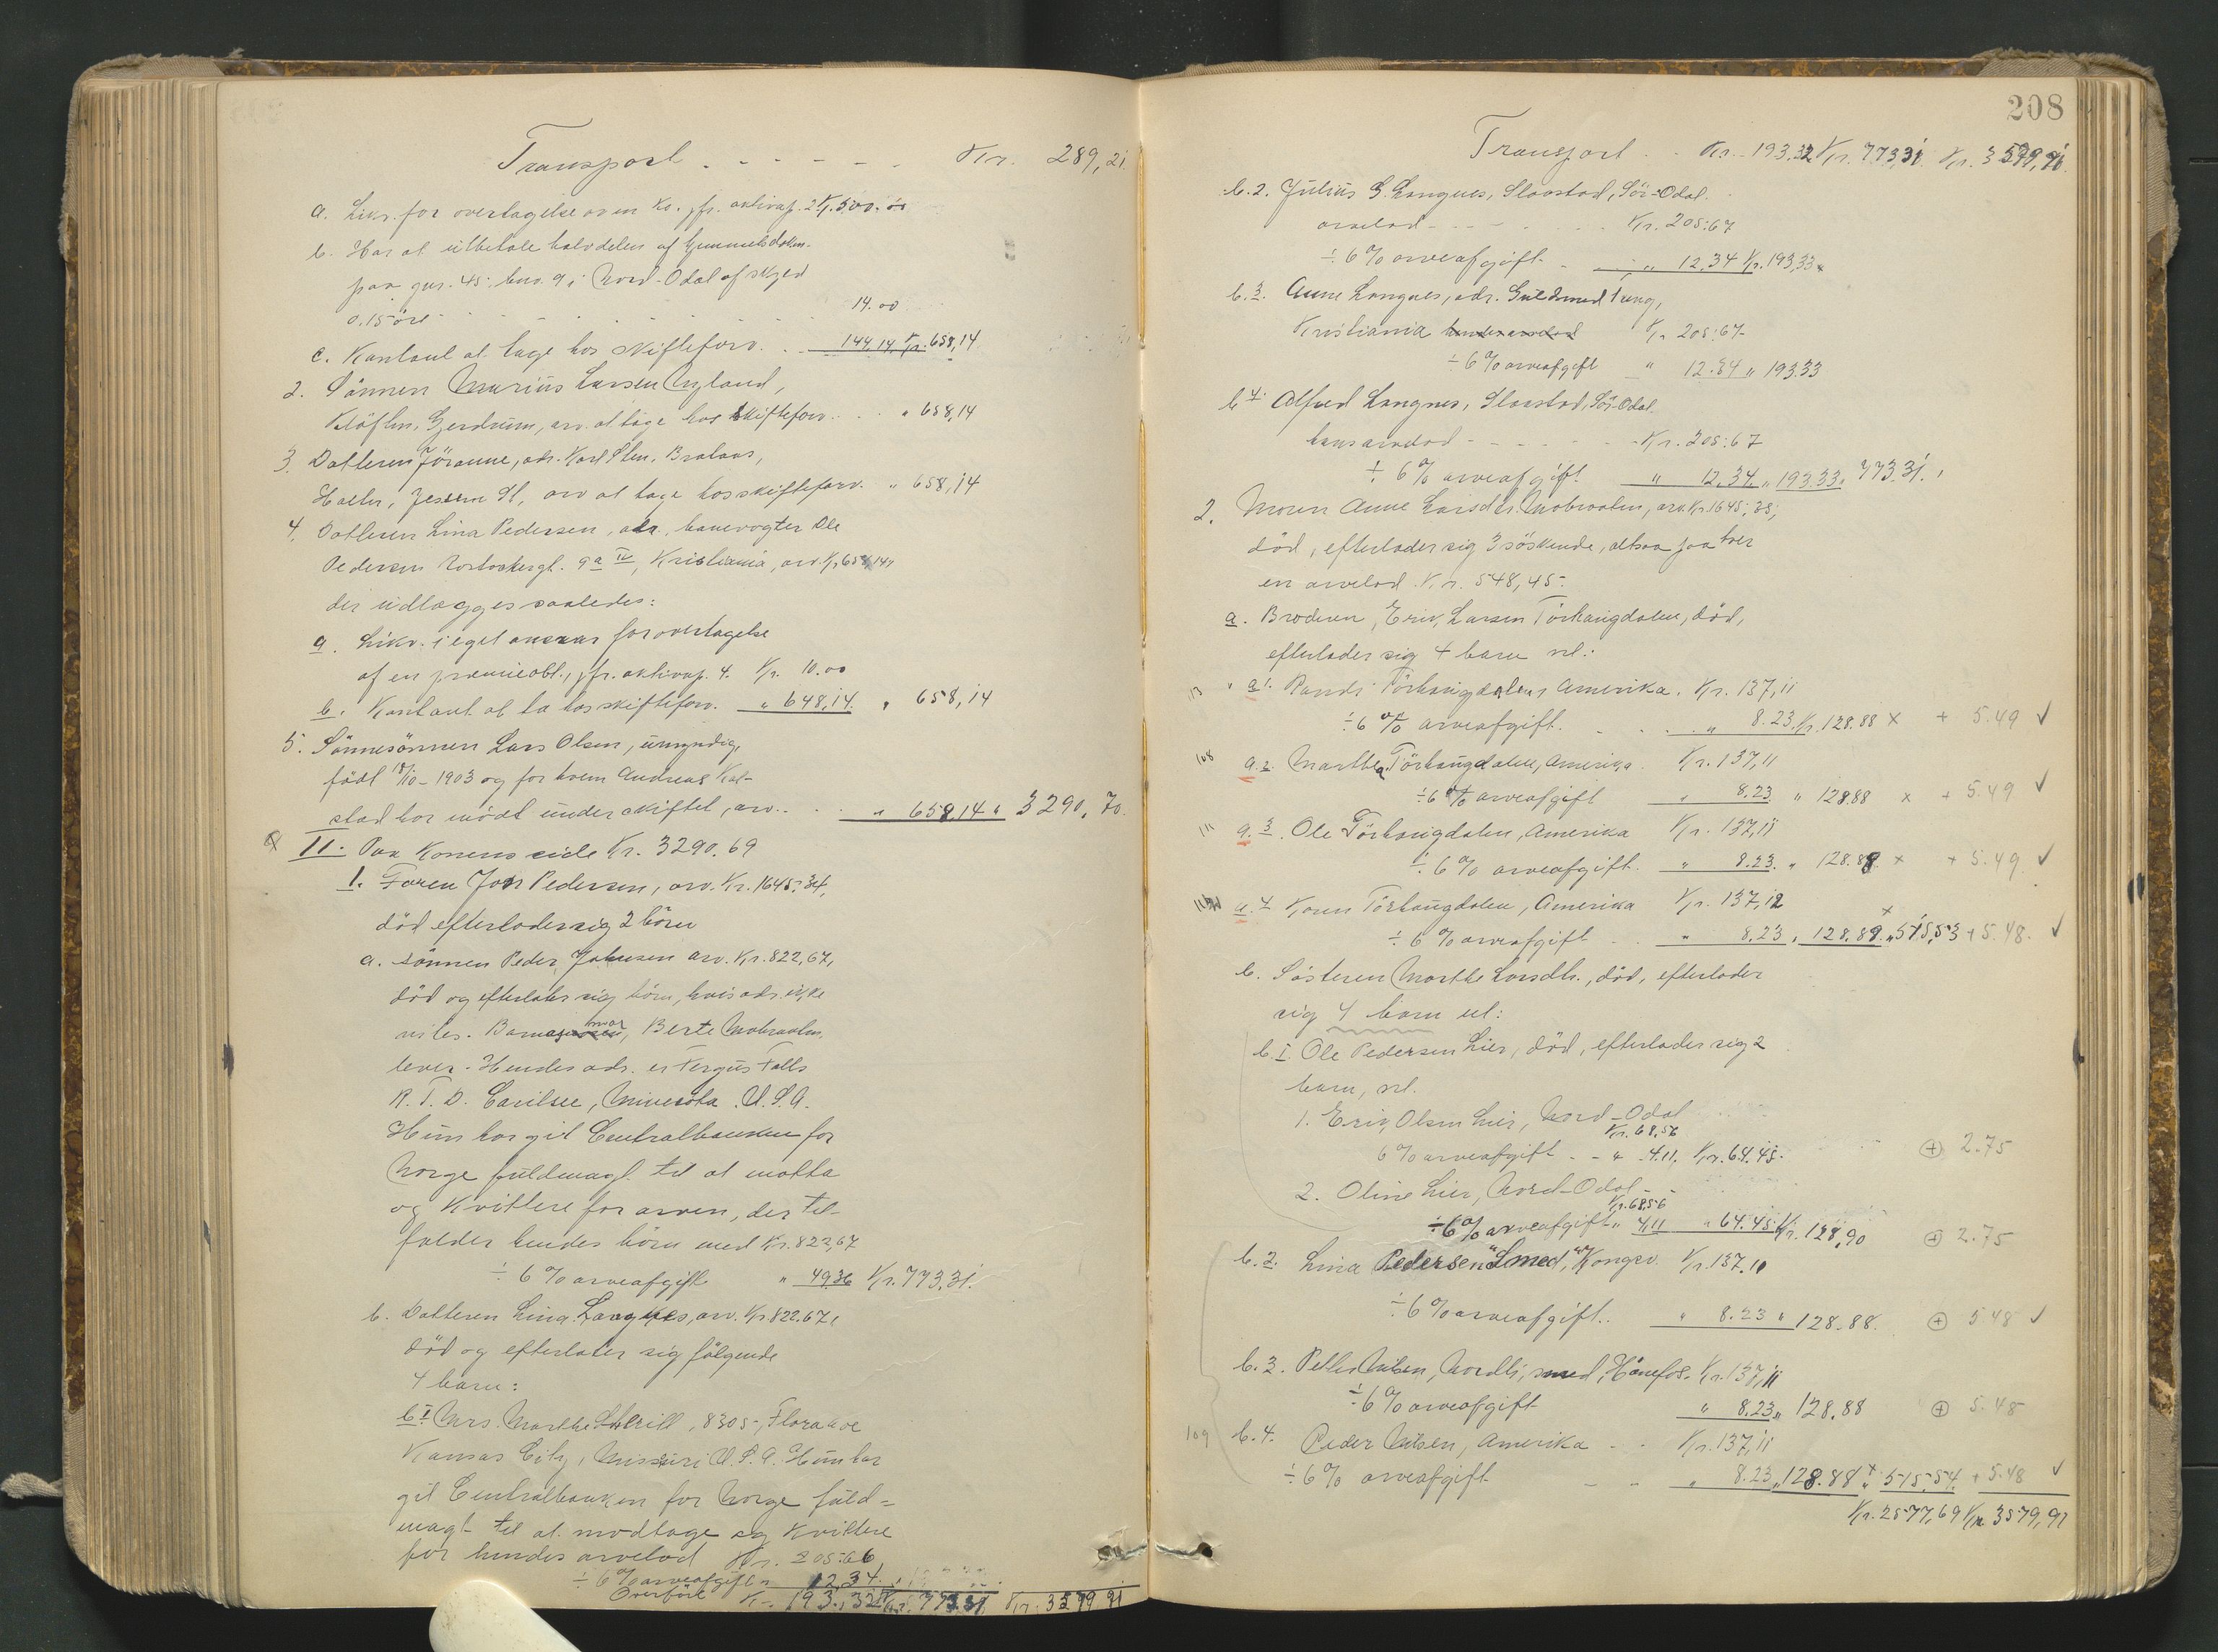 Transport - - - - - - Kr. 289,21
a. Likv. for overtagelse av en ko. jfr. aktivap. 2 Kr. 500.00
b. Har at utbetale halvdelen af
paa gnr. 45, bnr. 9 i Nord-Odal af skyld
0.15 öre - - - - 14.00
c. Kontant at tage hos skifteforv. . 144,14 Kr. 658,14
2. Sönnen Marius Larsen Nyland,
Klöften, Gjerdrum, arv. at tage hos skifteforv. . . " 658,14
3. Datteren Jöranne, adr. Karl Sten. Braataas,
Holter, Jessem St, arv at tage hos skifteforv. " 658,14
4. Datteren Lina Pedersen, adr. banevogter Ole
Pedersen 9a IV, Kristiania, arv. Kr. 658,14,
der udlægges saaledes:
a. Likv. i eget ansvar for overtagelse
af en præmieobl., jfr. aktivap. 4. Kr. 10.00
b. Kontant at ta hos skifteforv. " 648,14. " 658,14
5. Sönnesönnen Lars Olsen, umyndig,
födt 18/10-1903 og for hvem Andreas Kal-
stad har mödt under skiftet, arv. . . " 658,14 " 3290,70.
II. Paa Konens side Kr. 3290.69
1. Faren Jon Pedersen, arv. Kr. 1645.34,
död efterlader sig 2 börn
a. sönnen Peder Johnsen arv. Kr. 822,67,
död og efterlater sig börn, hvis adr. ikke
vites. Barnas mor, Berte Mobraaten
lever. Hendes adr. er Fergus Falls
R. F. D. Carilsee, Minesota. U.S.A.
Hun har git Centralbanken for
Norge fuldmagt til at motta
og kvittere for arven, der til-
falder hendes börn med Kr. 822,67
÷ 6 % arveafgift " 49.36 Kr. 773,31.
b. Datteren Lina Langnes, arv. Kr. 822.67,
död og efterlater sig fölgende
4 barn:
b.1. Mrs. Marthe, 8305, Flora ave
Kansas City, Missuri U.S.A. Hun har
git Centralbanken for Norge fuld=
magt til at modtage og kvittere
for hendes arvelod Kr. 205.66
÷ 6 % arveafgift " 12,34.
Overfört Kr. 193,32 Kr. 773.31 Kr. 3579,91
208
Transport . . Kr. 193.32 Kr. 773,31 Kr. 3579,91.
b.2. Julius G. Langnes, Slaastad, Sör-Odal.
arvelod - - - . . . Kr. 205.67
÷ 6 % arveafgift - " 12.34 Kr. 193,33
b.3. Anne Langnes, adr. Guldsmed Tveng,
Kristiania Kr. 205.67
÷ 6 % arveafgift " 12.34 " 193.33
b.4. Alfred Langnes, Slaastad, Sör-Odal.
hans arvelod - - - - - Kr. 205.67
÷ 6 % arveafgift " 12.34 " 193.33 " 773.31.
2. Moren Anne Larsdtr. Mobraaten, arv. Kr. 1645,35,
död, efterlader sig 3 söskende, altsaa paa hver
en arvelod Kr. 548,45.
a. Broderen, Erik Larsen Törhaugdalen, död,
efterlader sig 4 barn nl.:
a1. Randi Törhaugdalen, Amerika. Kr. 137,11
÷ 6 % arveafgift. . . " 8.23. Kr. 128.88 x + 5.49 ✓
108 a.2. Marthea Törhaugdalen, Amerika. Kr. 137,11
÷ 6 % arveafgift " 8.23 " 128.88 x + 5.49 ✓
111 a.3. Ole Törhaugdalen, Amerika Kr. 137,11
÷ 6 % arveafgift. " 8.23. " 128.88 x + 5.49 ✓
a.4 Karen Törhaugdalen, Amerika Kr. 137,12
÷ 6 % arveafgift . . " 8,23 . 128.89. x " 515,53 + 5.48. ✓
b. Sösteren Marthe Larsdtr., död, efterlader
sig 4 barn nl:
b.1. Ole Pedersen Lier, död, efterlader sig 2
barn, nl.
1. Erik Olsen Lier, Nord-Odal
Kr. 68,56
6 % arveafgift - - " 4.11. Kr. 64.45. + 2.75
2. Oline Lier, Nord-Odal -
Kr. 68,56
÷ 6 % arveafgift " 4,11 " 64.45 Kr. 128,90 + 2.75
b.2. Lina Pedersen "Smed", Kongsv. Kr. 137.11
÷ 6 % arveafgift. . " 8.23 " 128.88. + 5.48 ✓
b.3. Petter Nilsen, Nordli, smed, Hönefos. Kr. 137,11
÷ 6 % arveafgift " 8.23 " 128.88 + 5.48
109 b.4. Peder Nilsen, Amerika - - Kr. 137,11
÷ 6 % arveafgift - - " 8.23 " 128.88 x " 515.54 + 5.48 ✓
Kr. 2577,69 Kr. 3579,91